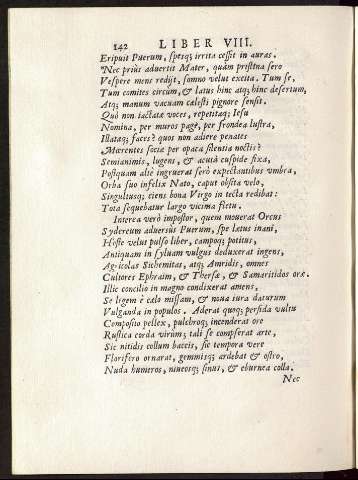 142 LIBER VIII.
Eripuit Puerum, spesq; irrita cessit in auras.
Nec priùs aduertit Mater, quàm pristina sero
Vespere mens redijt, somno velut excita. Tum se,
Tum comites circùm, & latus hinc atq; hinc desertum,
Atq; manum vacuam cælesti pignore sensit.
Quò non iactatæ voces, repetitaq; Iesu
Nomina, per muros page, per frondea lustra,
Illataq; faces? quos non adiere penates
Mœrentes sociæ per opaca silentia noctis?
Semianimis, lugens, & acutâ cuspide fixa,
Postquam altè ingruerat serò expectantibus vmbra,
Orba suo infelix Nato, caput obsita velo,
Singultusq; ciens bona Virgo in tecta redibat:
Tota sequebatur largo vicinia fletu.
Interea verò impostor, quem mouerat Orcus
Sydereum aduersùs Puerum, spe latus inani,
Hoste velut pulso liber, campoq; potitus,
Antiquam in syluam vulgus deduxerat ingens,
Agricolas Sichemitas, atq; Amridis, omnes
Cultores Ephraim, & Thersæ, & Samaritidos oræ.
Illic concilio in magno condixerat amens,
Se legem è cælo missam, & noua iura daturum
Vulganda in populos. Aderat quoq; perfida vultu
Composito pellex, pulchroq; incenderat ore
Rustica corda virûm; tali se compserat arte,
Sic nitidis collum baccis, sic tempora vere
Florifero ornarat, gemmisq; ardebat & ostro,
Nuda humeros, niueosq; sinus, & eburnea colla.
Nec